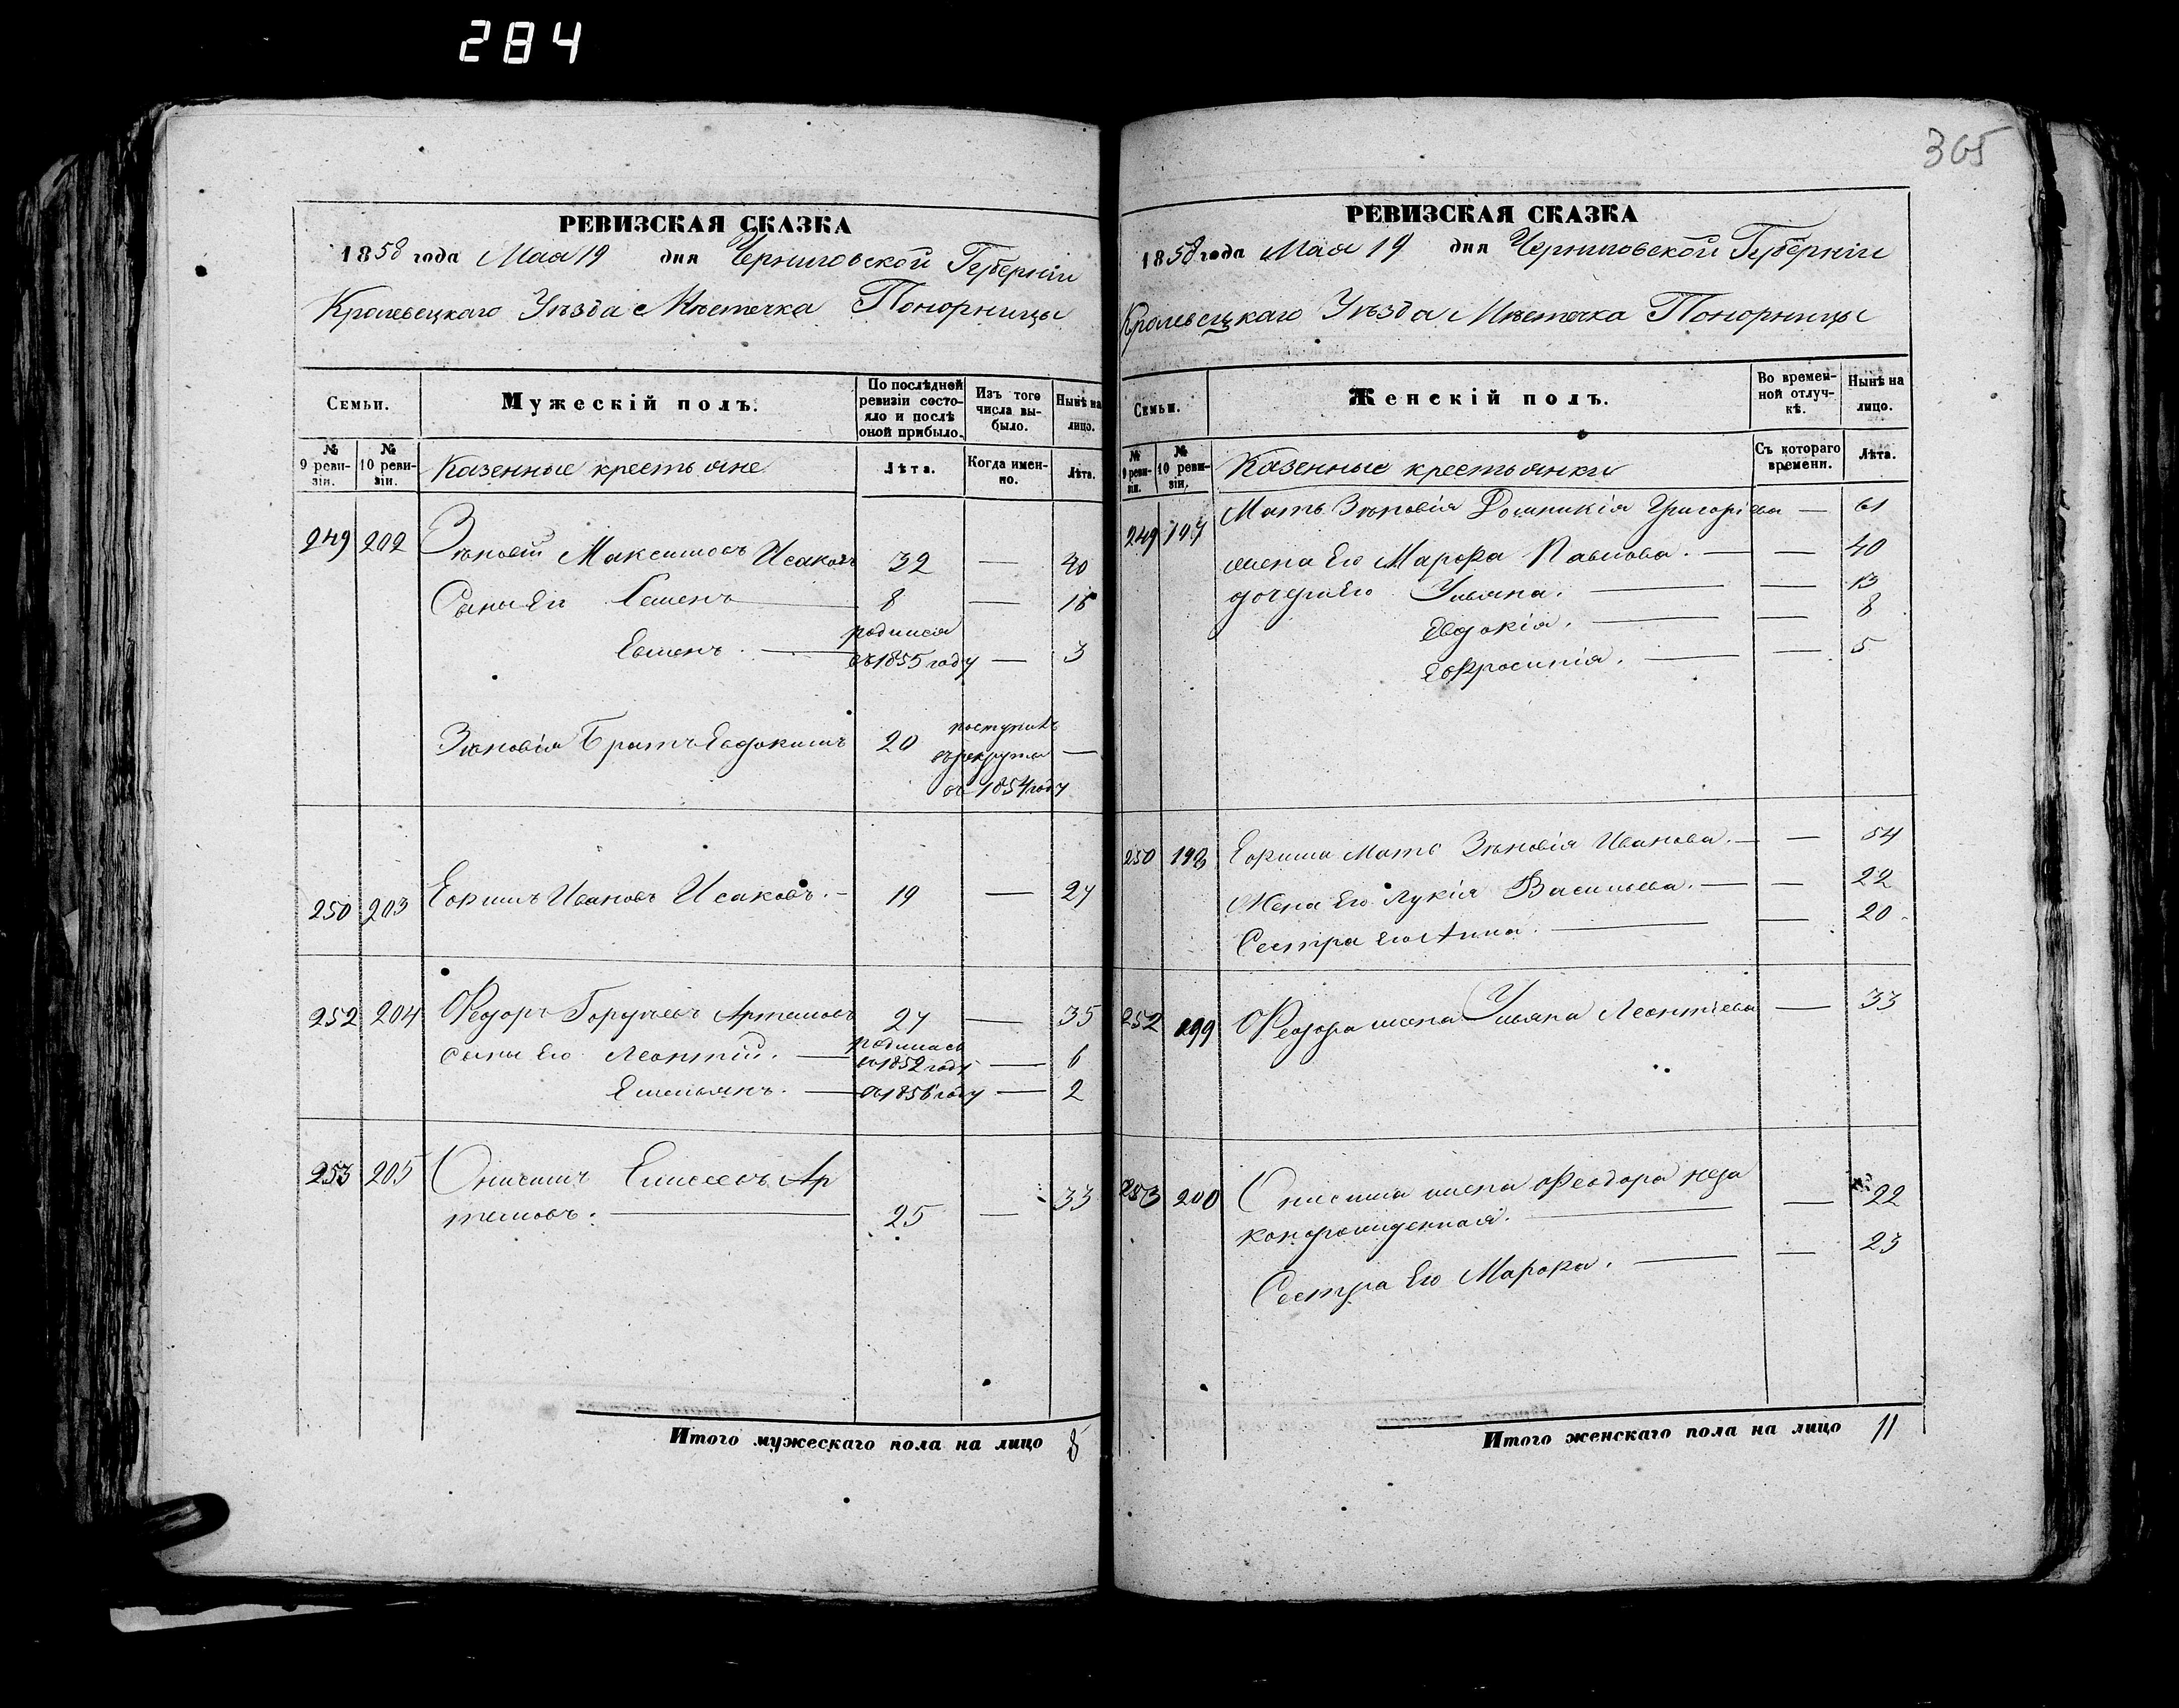 284
365
РЕВИЗСКАЯ СКАЗКА
1858 года Мая 19 дня Черниговской Губерніи
Кролевецкаго Уѣзда Мѣстечка Понорницы
Семьи.
Мужескій полъ.
По послѣдней ревизіи состояло и послѣ оной прибыло.
Изъ того числа выбыло.
Нынѣ на лицо.
№ 9 ревизіи.
№ 10 ревизіи.
Казенные крестьяне
Лѣта.
Когда именно.
Лѣта.
249 202 Зѣновій Максимовъ Исаковъ 32 — 40
Сыны Его Семенъ 8 — 16
родился
Евменъ. въ 1855 году — 3
Зѣновія Братъ Евдокимъ 20 поступилъ
въ рекруты —
въ 1854 году
250 203 Ефимъ Ивановъ Исаковъ. 19 — 27
252 204 Федоръ Гордѣевъ Артемовъ 27 — 35
родились
сыны Его Леонтій. въ 1852 году — 6
Емельянъ. въ 1856 году — 2
253 205 Онисимъ Елисеевъ Ар
темовъ. 25 — 33
Итого мужескаго пола на лицо 8
РЕВИЗСКАЯ СКАЗКА
1858 года Мая 19 дня Черниговской Губерніи
Кролевецкаго Уѣзда Мѣстечка Понорницы
Семьи.
Женскій полъ.
Во временной отлучкѣ.
Нынѣ на лицо.
№ 9 ревизіи.
№ 10 ревизіи.
Казенные крестьянки
Съ котораго времени.
Лѣта.
249 197 Мать Зѣновія Домникія Григоріева — 61
жена Его Марфа Павлова. — 40
дочери Его Ульяна. — 13
Евдокія. — 8
Ефросинія. — 5
250 198 Ефима Мать Зѣновія Иванова. — 54
Жена Его Лукія Васильева. — 22
Сестра Его Анна. — 20
252 199 Федора жена Ульяна Леонтіева — 33
253 200 Онисима жена Феодора неза
конорожденная. — 22
Сестра Его Марфа. — 23
Итого женскаго пола на лицо 11